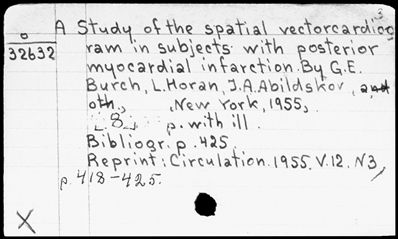 3
A Study of the spatial vectorcardiog
0
32632
ram in subjects with posterior
myocardial infarction. By G.E.
Burch, L. Horan, J.A. Abildskov, and
oth., New York, 1955,
[8] p. with ill.
Bibliogr. p. 425.
Reprint: Circulation. 1955. V.12. N3,
p. 418-425.
X